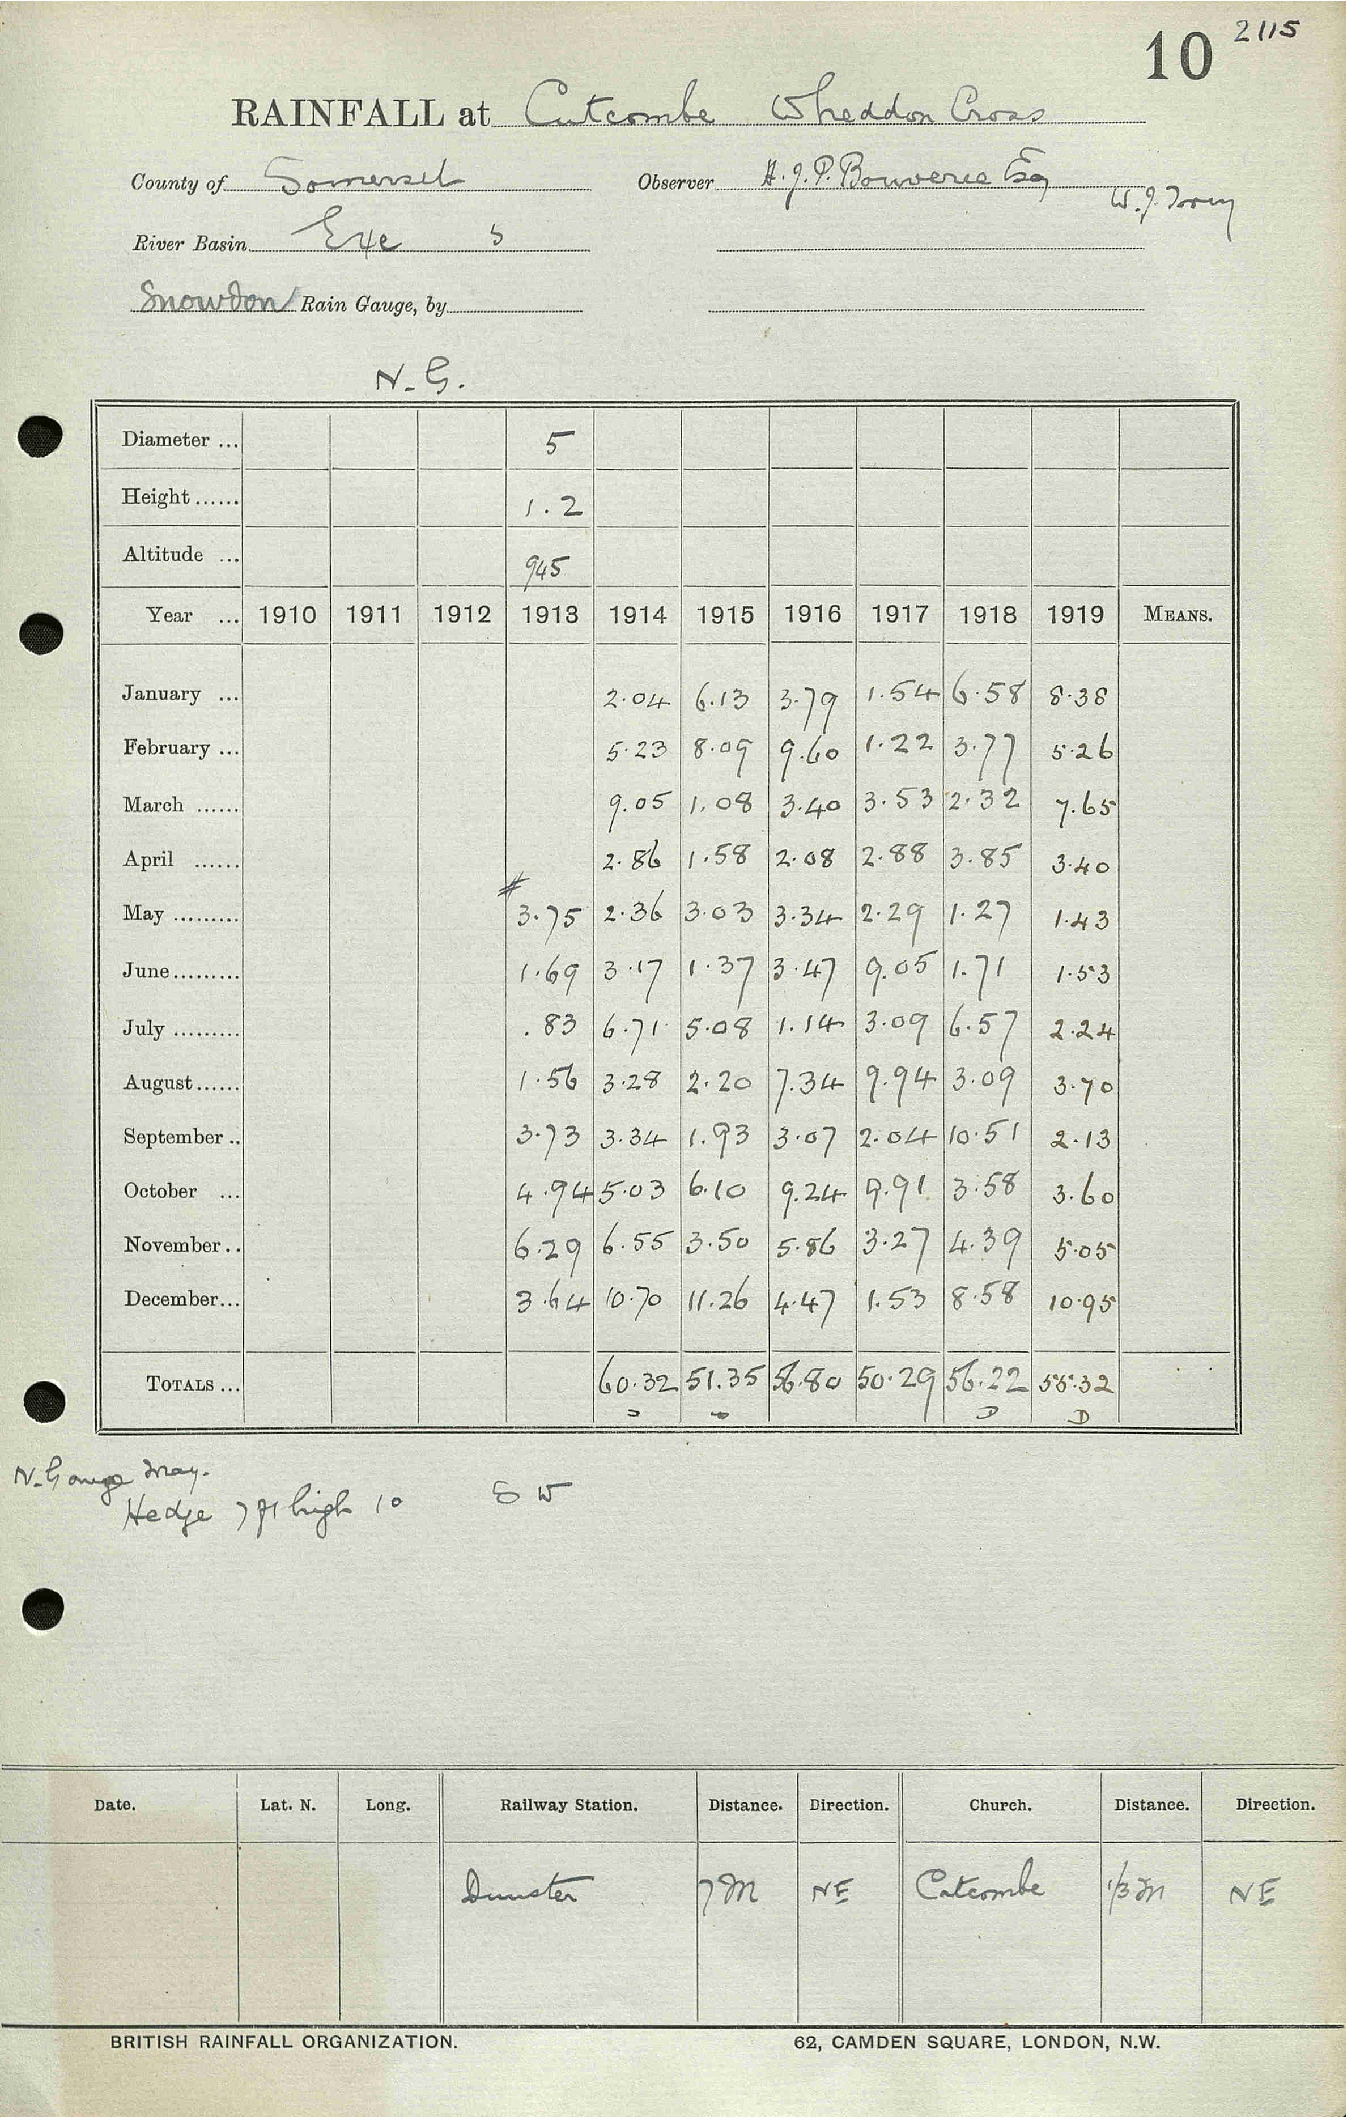 10 2115
RAINFALL at Cutcombe Wheddon Cross
County of Somerset Observer H.J.P. Bouverie Esq
W.J.
River Basin Exe 5
Snowdon Rain Gauge, by
N.G.
Diameter ... 5
Height ...... 1.2
Altitude ... 945
Year ... 1910 1911 1912 1913 1914 1915 1916 1917 1918 1919 MEANS.
January ... 2.04 6.13 3.79 1.54 6.58 8.38
February ... 5.23 8.09 9.60 1.22 3.77 5.26
March ...... 9.05 1.08 3.40 3.53 2.32 7.65
April ...... 2.86 1.58 2.08 2.88 3.85 3.40
#
May ......... 3.75 2.36 3.03 3.34 2.29 1.27 1.43
June ......... 1.69 3.17 1.37 3.47 9.05 1.71 1.53
July ......... .83 6.71 5.08 1.14 3.09 6.57 2.24
August ...... 1.56 3.28 2.20 7.34 9.94 3.09 3.70
September .. 3.73 3.34 1.93 3.07 2.04 10.51 2.13
October ... 4.94 5.03 6.10 9.24 9.91 3.58 3.60
November .. 6.29 6.55 3.50 5.86 3.27 4.39 5.05
December ... 3.64 10.70 11.26 4.47 1.53 8.58 10.95
TOTALS ... 60.32 51.35 56.80 50.29 56.22 55.32
D D
N. Gauge May.
Hedge 7 ft high 10 SW
Date. Lat. N. Long. Railway Station. Distance. Direction. Church. Distance. Direction.
Dunster 7 M NE Cutcombe 1/3 M NE
BRITISH RAINFALL ORGANIZATION. 62, CAMDEN SQUARE, LONDON, N.W.